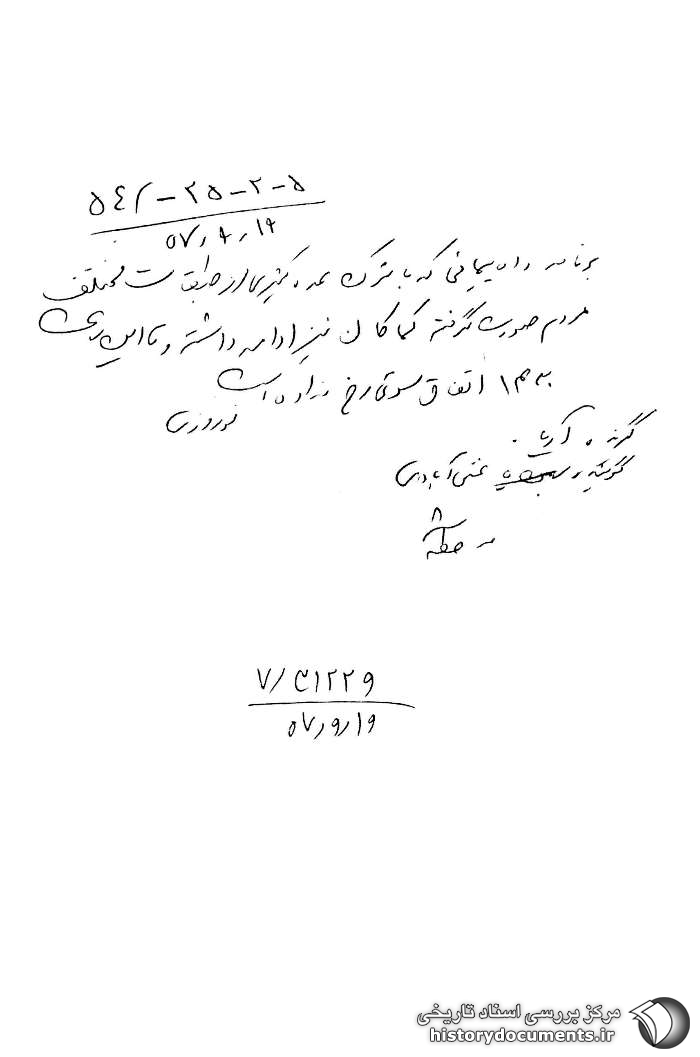 ۵۴۱ - ۲۵ - ۲ - ۵
۵۷٫۹٫۱۹
برنامه راه پیمائی که با شرکت عده کثیری از طبقات مختلف
مردم صورت گرفته کماکان نیز ادامه داشته و تا این
اتفاق سوئی رخ نداده است
نوروزی
گیرنده آریا
گوینده نجف آبادی
ملاحظه
۵۷٫۹٫۱۹
مرکز بررسی اسناد تاریخی
historydocuments.ir